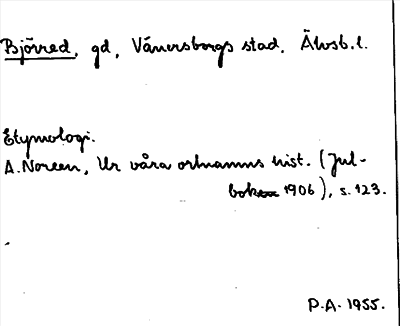 Björred, gd, Vänersborgs stad, Älvsb. l.
Etymologi.
A. Noreen, Ur våra ortnamns hist. (Jul-
boken 1906), s. 123.
P.A. 1955.